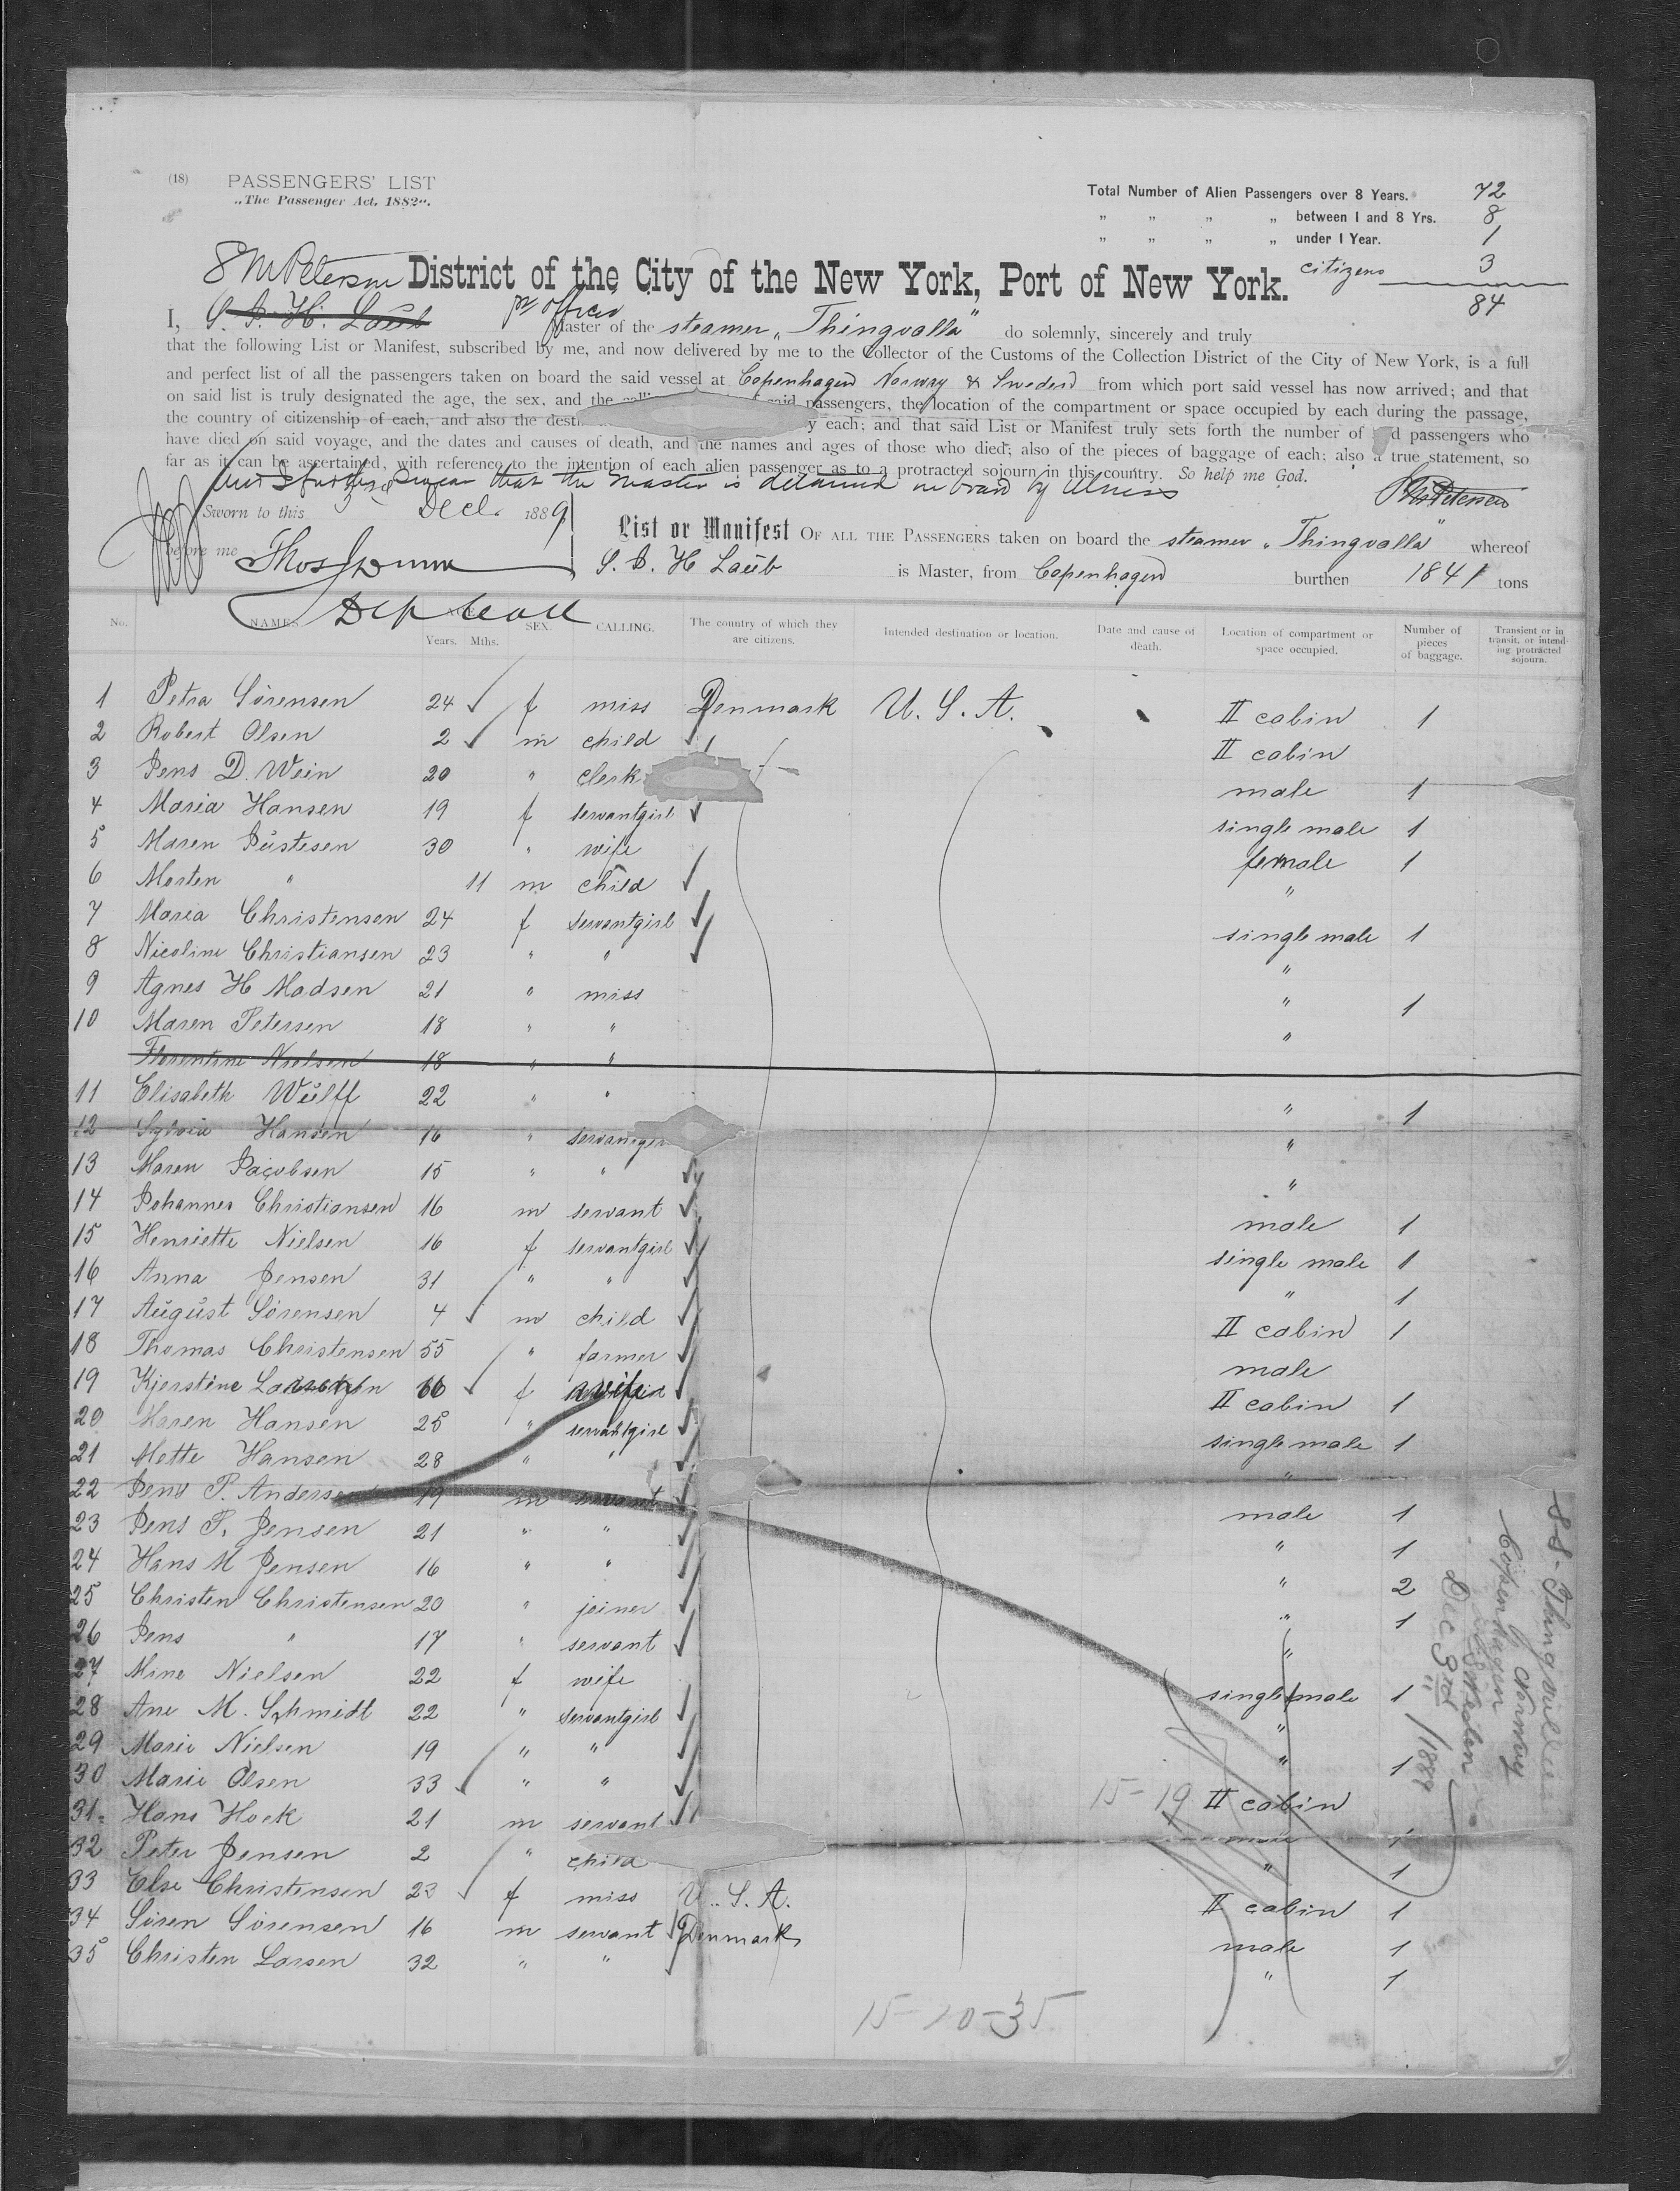 (18) PASSENGERS' LIST
„The Passenger Act, 1882".
Total Number of Alien Passengers over 8 Years. 72
„ „ „ „ between 1 and 8 Yrs. 8
„ „ „ „ under 1 Year. 1
citizens 3
84
District of the City of the New York, Port of New York.
I, S. B. H. Laub Master of the steamer „Thingvalla" do solemnly, sincerely and truly
that the following List or Manifest, subscribed by me, and now delivered by me to the Collector of the Customs of the Collection District of the City of New York, is a full
and perfect list of all the passengers taken on board the said vessel at Copenhagen Norway & Sweden from which port said vessel has now arrived; and that
on said list is truly designated the age, the sex, and the said passengers, the location of the compartment or space occupied by each during the passage,
the country of citizenship of each, and also the y each; and that said List or Manifest truly sets forth the number of passengers who
have died on said voyage, and the dates and causes of death, and the names and ages of those who died; also of the pieces of baggage of each; also a true statement, so
far as it can be ascertained, with reference to the intention of each alien passenger as to a protracted sojourn in this country. So help me God.
swear that the master is detained on board by illness
Sworn to this Dec. 1889
before me Thos
List or Manifest OF ALL THE PASSENGERS taken on board the steamer „Thingvalla" whereof
S. B. H Laub is Master, from Copenhagen burthen 1841 tons
No. NAMES AGE Years. Mths. SEX. CALLING. The country of which they are citizens. Intended destination or location. Date and cause of death. Location of compartment or space occupied. Number of pieces of baggage. Transient or in transit, or intending protracted sojourn.
1 Petra Sörensen 24 f miss Denmark U. S. A. II cabin 1
2 Robert Olsen 2 m child II cabin
3 Jens D. Wein 20 " clerk male 1
4 Maria Hansen 19 f servantgirl single male 1
5 Maren Justesen 30 " wife female 1
6 Morten " 11 m child "
7 Maria Christensen 24 f servantgirl single male 1
8 Nicoline Christiansen 23 " " "
9 Agnes H Madsen 21 " miss " 1
10 Maren Petersen 18 " " "
Florentine Nielsen 18 " "
11 Elisabeth Wulff 22 " " " 1
12 Hansen 16 " "
13 Maren Jacobsen 15 " " "
14 Johannes Christiansen 16 m servant male 1
15 Henriette Nielsen 16 f servantgirl single male 1
16 Anna Jensen 31 " " " 1
17 August Sörensen 4 m child II cabin 1
18 Thomas Christensen 55 " farmer male
19 Kjerstine 66 f wife II cabin 1
20 Maren Hansen 25 " servantgirl single male 1
21 Mette Hansen 28 " " "
22 Jens P. Andersen 19 m servant male 1
23 Jens P. Jensen 21 " " " 1
24 Hans M Jensen 16 " " " 2
25 Christen Christensen 20 " joiner " 1
26 Jens " 17 " servant "
27 Mine Nielsen 22 f wife single male 1
28 Ane M. Schmidt 22 " servantgirl "
29 Marie Nielsen 19 " " " 1
30 Marie Olsen 33 " " II cabin
31 Hans Hock 21 m servant 1
32 Peter Jensen 2 " child " 1
33 Else Christensen 23 f miss U. S. A. II cabin 1
34 Sören Sörensen 16 m servant Denmark male 1
35 Christen Larsen 32 " " " 1
15-19
15-10-35
Copenhagen
Norway
Dec 3rd /1889